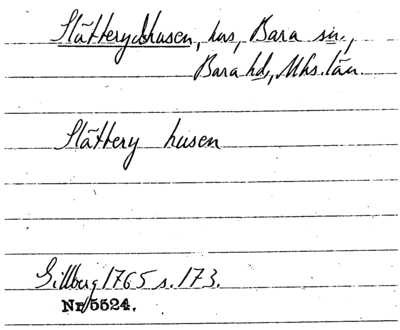 Slätterydshusen, hus, Bara sn.,
Bara hd, Mhs. län.
Slättery husen
Gillberg 1765 s. 173.
Nr 5524.